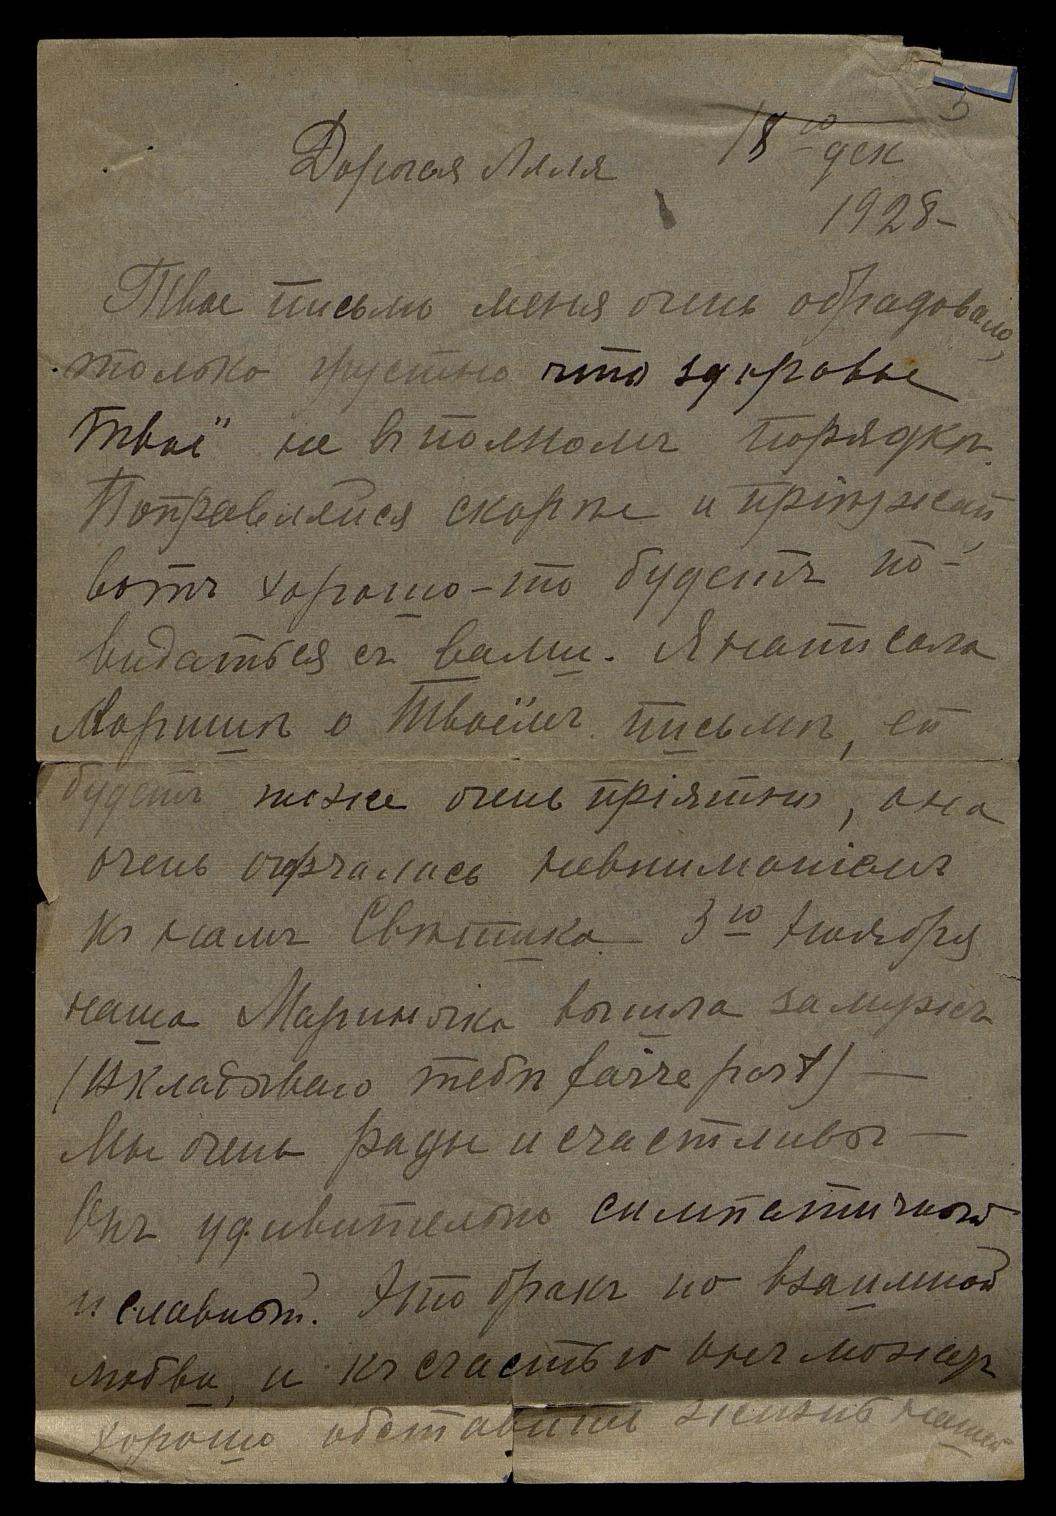 5
18го дек
Дорогая Ляля
1928 –
Твое письмо меня очень обрадовало,
только грустно что здоровье
твоё не въ полномъ порядкѣ.
Поправляйся скорѣе и прiѣзжай,
вотъ хорошо-то будетъ по-
видаться съ вами. Я написала
Маришѣ о Твоёмъ письмѣ, ей
будетъ тоже очень прiятно, она
очень огорчалась невниманiемъ
къ намъ Свѣтика. 3го Ноября
наша Мариночка вышла замужъ
(вкладываю тебѣ faire part) —
Мы очень рады и счастливы —
Онъ удивительно симпатичный
и славный. Это бракъ по взаимной
любви, и къ счастью онъ можетъ
хорошо обставить жизнь нашей